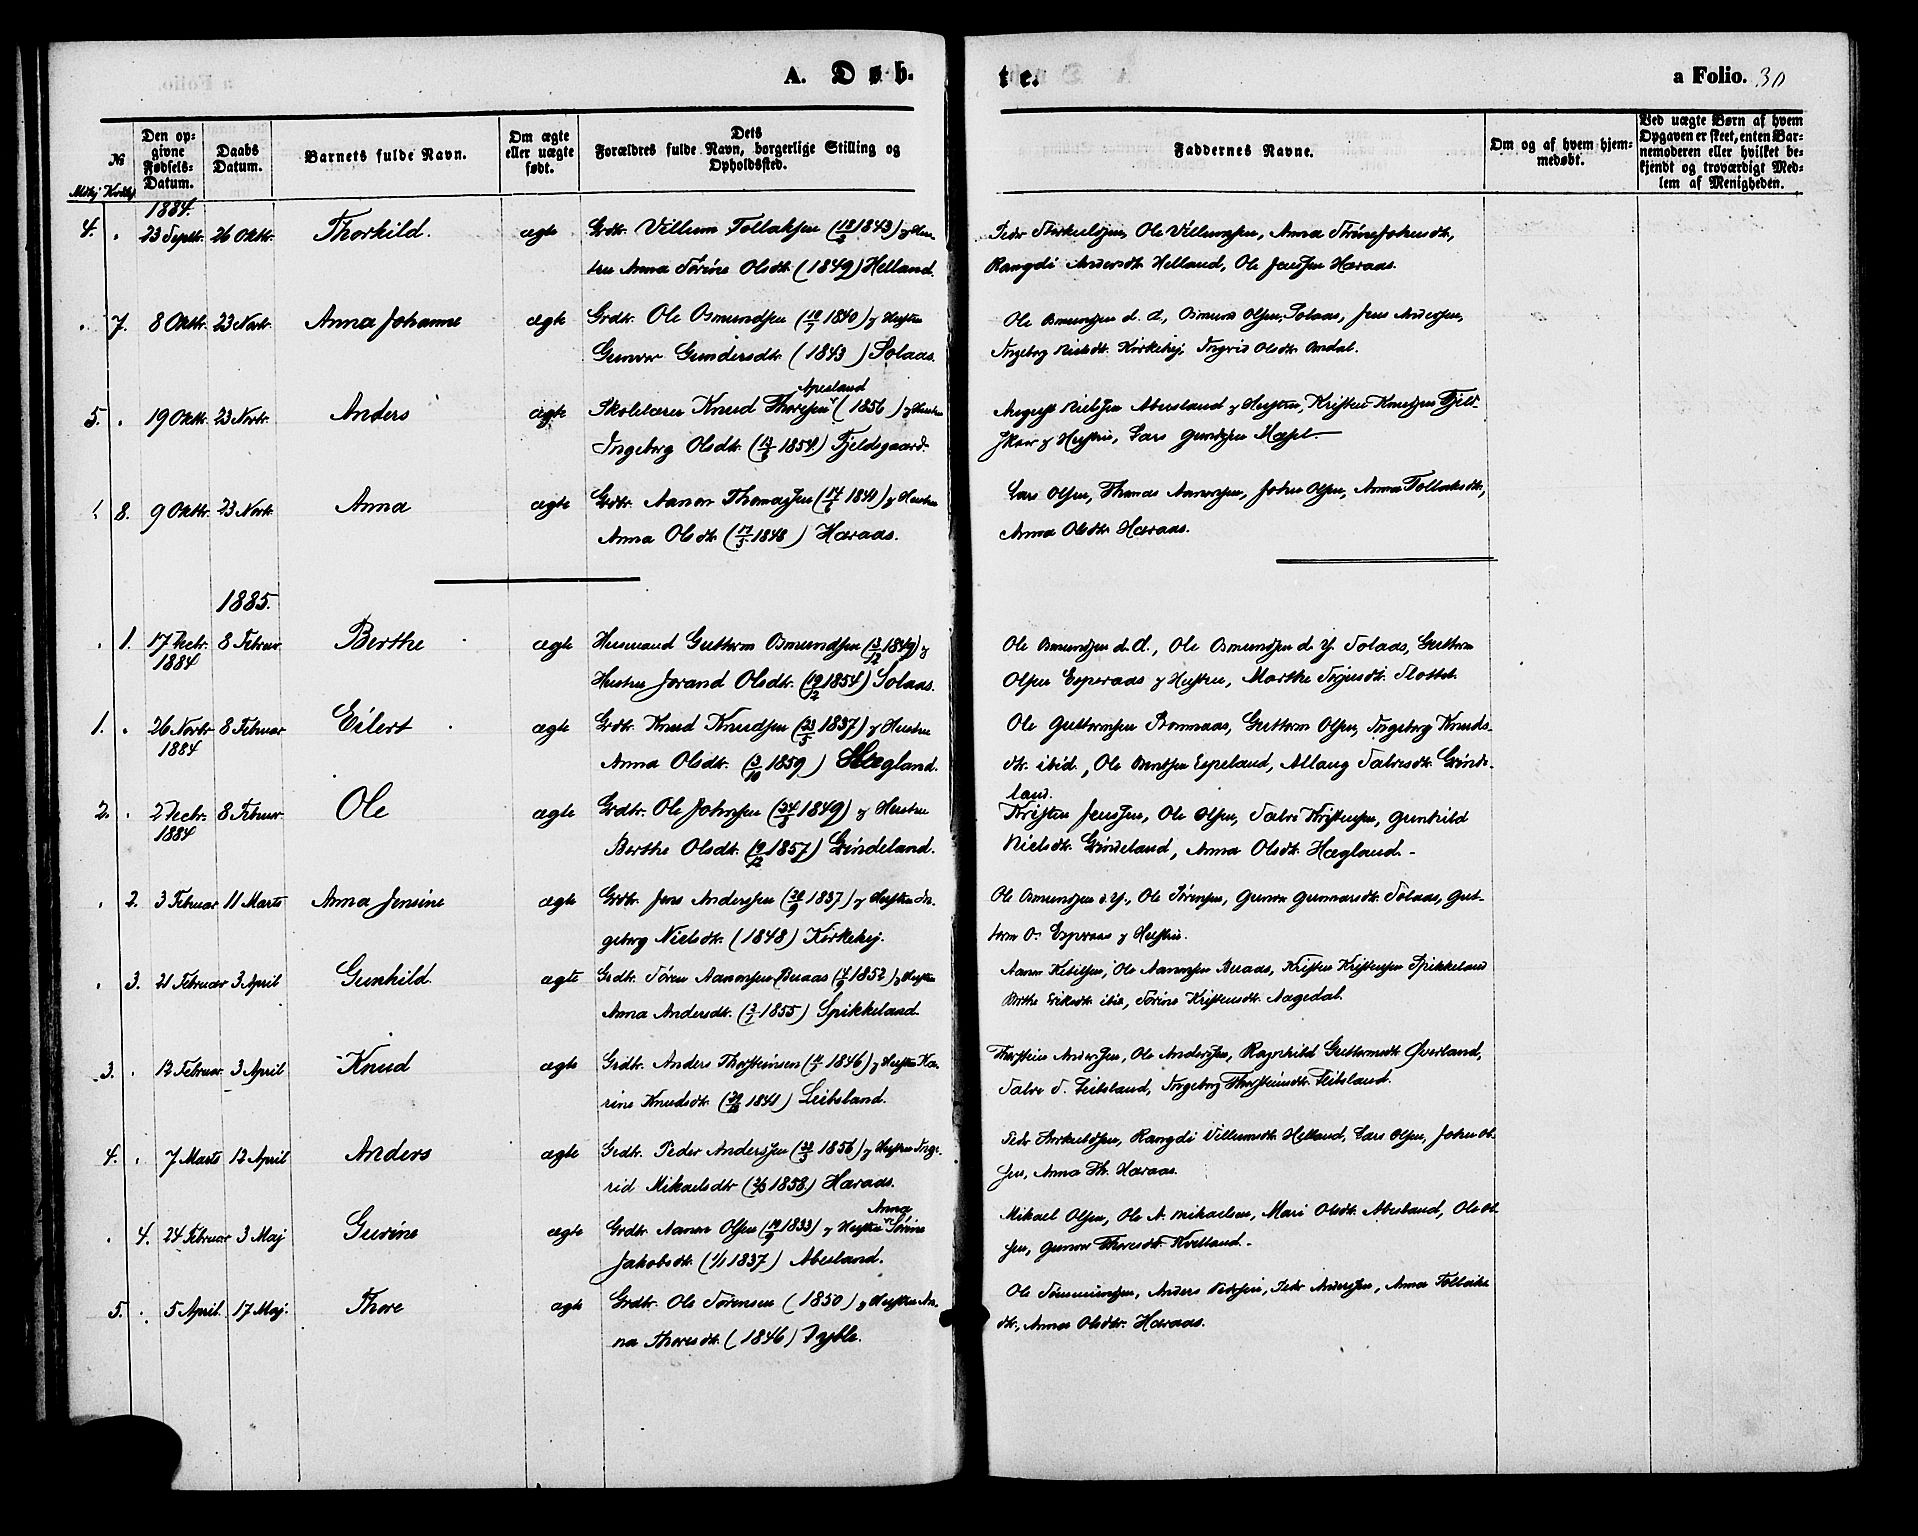 A. Døb-
te.
a Folio. 30
№
Mdkj Kvdkj
Den op-
givne
Fødsels-
Datum.
Daabs
Datum.
Barnets fulde Navn.
Om ægte
eller uægte
født.
Dets
Forældres fulde Navn, borgerlige Stilling og
Opholdssted.
Faddernes Navne.
Om og af hvem hjem-
medøbt.
Ved uægte Børn af hvem
Opgaven er skeet, enten Bar-
nemoderen eller hvilket be-
kjendt og troværdigt Med-
lem af Menigheden.
1884.
4. 23 Septr. 26 Oktr. Thorkild. ægte Grdbr. Villum Tollaksen (18/3 1843) og Hus-
tru Anna Sørine Olsdtr. (1849) Helland.
Peder Thorkildsen, Ole Villumsen, Anna Sørine Johnsdtr,
Rangdi Andersdtr. Helland, Ole Jensen Haraas.
7. 8 Oktr. 23 Novbr. Anna Johanne ægte Grdbr. Ole Osmundsen (10/7 1840) og Hustru
Gunvor Gundersdtr. (1843) Solaas.
Ole Osmundsen d. æ., Osmund Olsen, Solaas, Jens Andersen,
Ingeborg Nielsdtr. Kirkehej, Ingrid Olsdtr. Omdal.
5. 19 Oktr. 23 Novbr. Anders ægte Skolelærer Knud Thoresen (1856) og Hustru
Apesland
Ingeborg Olsdtr. (14/6 1854) Fjeldsgaard.
August Nielsen Abusland og Hustru, Kristen Knudsen Fjeld-
skar og Hustru, Lars Gundersen Mæsel.
8. 9 Oktr. 23 Novbr. Anna ægte Grdbr. Aanon Thomassen (14/6 1841) og Hustru
Anna Olsdtr. (17/5 1848) Haraas.
Lars Olsen, Thomas Aanonsen, John Olsen, Anna Tollaksdtr,
Anna Olsdtr. Haraas.
1885.
1. 17 Decbr. 8 Februar Berthe ægte Husmand Guttorm Osmundsen (3/12 1849) og
1884
Hustru Jorand Olsdtr. (19/2 1854) Solaas.
Ole Osmundsen d. Æ., Ole Osmundsen d. Y. Solaas, Guttorm
Olsen Esperaas og Hustru, Marthe Terjesdtr. Slottet.
1. 26 Novbr 8 Februar Eilert ægte Grdbr. Knud Knudsen (23/5 1837) og Hustru
1884
Anna Olsdtr. (3/10 1859) Hægland.
Ole Guttormsen, Guttorm Olsen, Ingeborg Knuds-
dtr. ibid., Ole Berntsen Espeland, Allaug Salvesdtr. Grinde-
land.
2. 2 Decbr. 8 Februar Ole ægte Grdbr. Ole Johnsen (24/3 1849) og Hustru
1884
Berthe Olsdtr. (19/12 1857) Grindeland.
Kristen Jenssen, Ole Olsen, Salve Kristensen, Gunhild
Nielsdtr. Grindeland, Anna Olsdtr. Hægland.
2. 3 Februar 11 Marts Anna Jensine ægte Grdbr. Jens Anderssen (20/9 1837) og Hustru In-
geborg Nielsdtr. (1848) Kirkehej.
Ole Osmundsen d. Y., Ole Sørensen, Gunvor Gunnarsdtr. Solaas, Gut-
torm O. Esperaas og Hustru.
3. 21 Februar 3 April Gunhild. ægte Grdbr. Søren Aanonsen Beraas (4/9 1852) og Hustru
Anna Andersdtr. (3/7 1855) Spikkeland.
Aanon Ketilsen, Ole Aanonsen Beraas, Kristen Kristensen Spikkeland
Berthe Eriksdtr. ibid, Sørine Kristensdtr. Aagedal.
3. 12 Februar 3 April Knud ægte Grdbr. Anders Thorsteinsen (1846) og Hustru Ka-
rine Knudsdtr. (1841) Leibsland.
Thorstein Andersen, Ole Andersen, Ragnhild Guttormsdtr. Øverland,
Salve S. Leibsland, Ingeborg Thorsteinsdtr. Leibsland.
4. 7 Marts 12 April Anders ægte Grdbr. Peder Anderssen (23/3 1856) og Hustru Ing-
rid Mikaelsdtr (1858.) Haraas.
Peder Thorkildsen, Rangdi Villumsdtr. Helland, Lars Olsen, John Ol-
sen, Anna Th. Haraas.
4. 24 Februar 3 Maj Gurine ægte Grdbr. Aanon Olsen (14/9 1833) og Hustru Sørine
Anna
Jakobsdtr. (1/1 1837) Abusland.
Mikael Olsen, Ole A. Mikaelsen, Mari Olsdtr. Abusland, Ole Ol-
sen, Gunvor Thoresdtr. Kvelland.
5. 5 April. 17 Maj. Thore ægte Grdbr. Ole Sørensen (1850) og Hustru An-
na Thoresdtr. (1846)
Anders Pedersen, Peder Anderssen, Anna Tollaks-
dtr., Anna Olsdtr. Haraas.